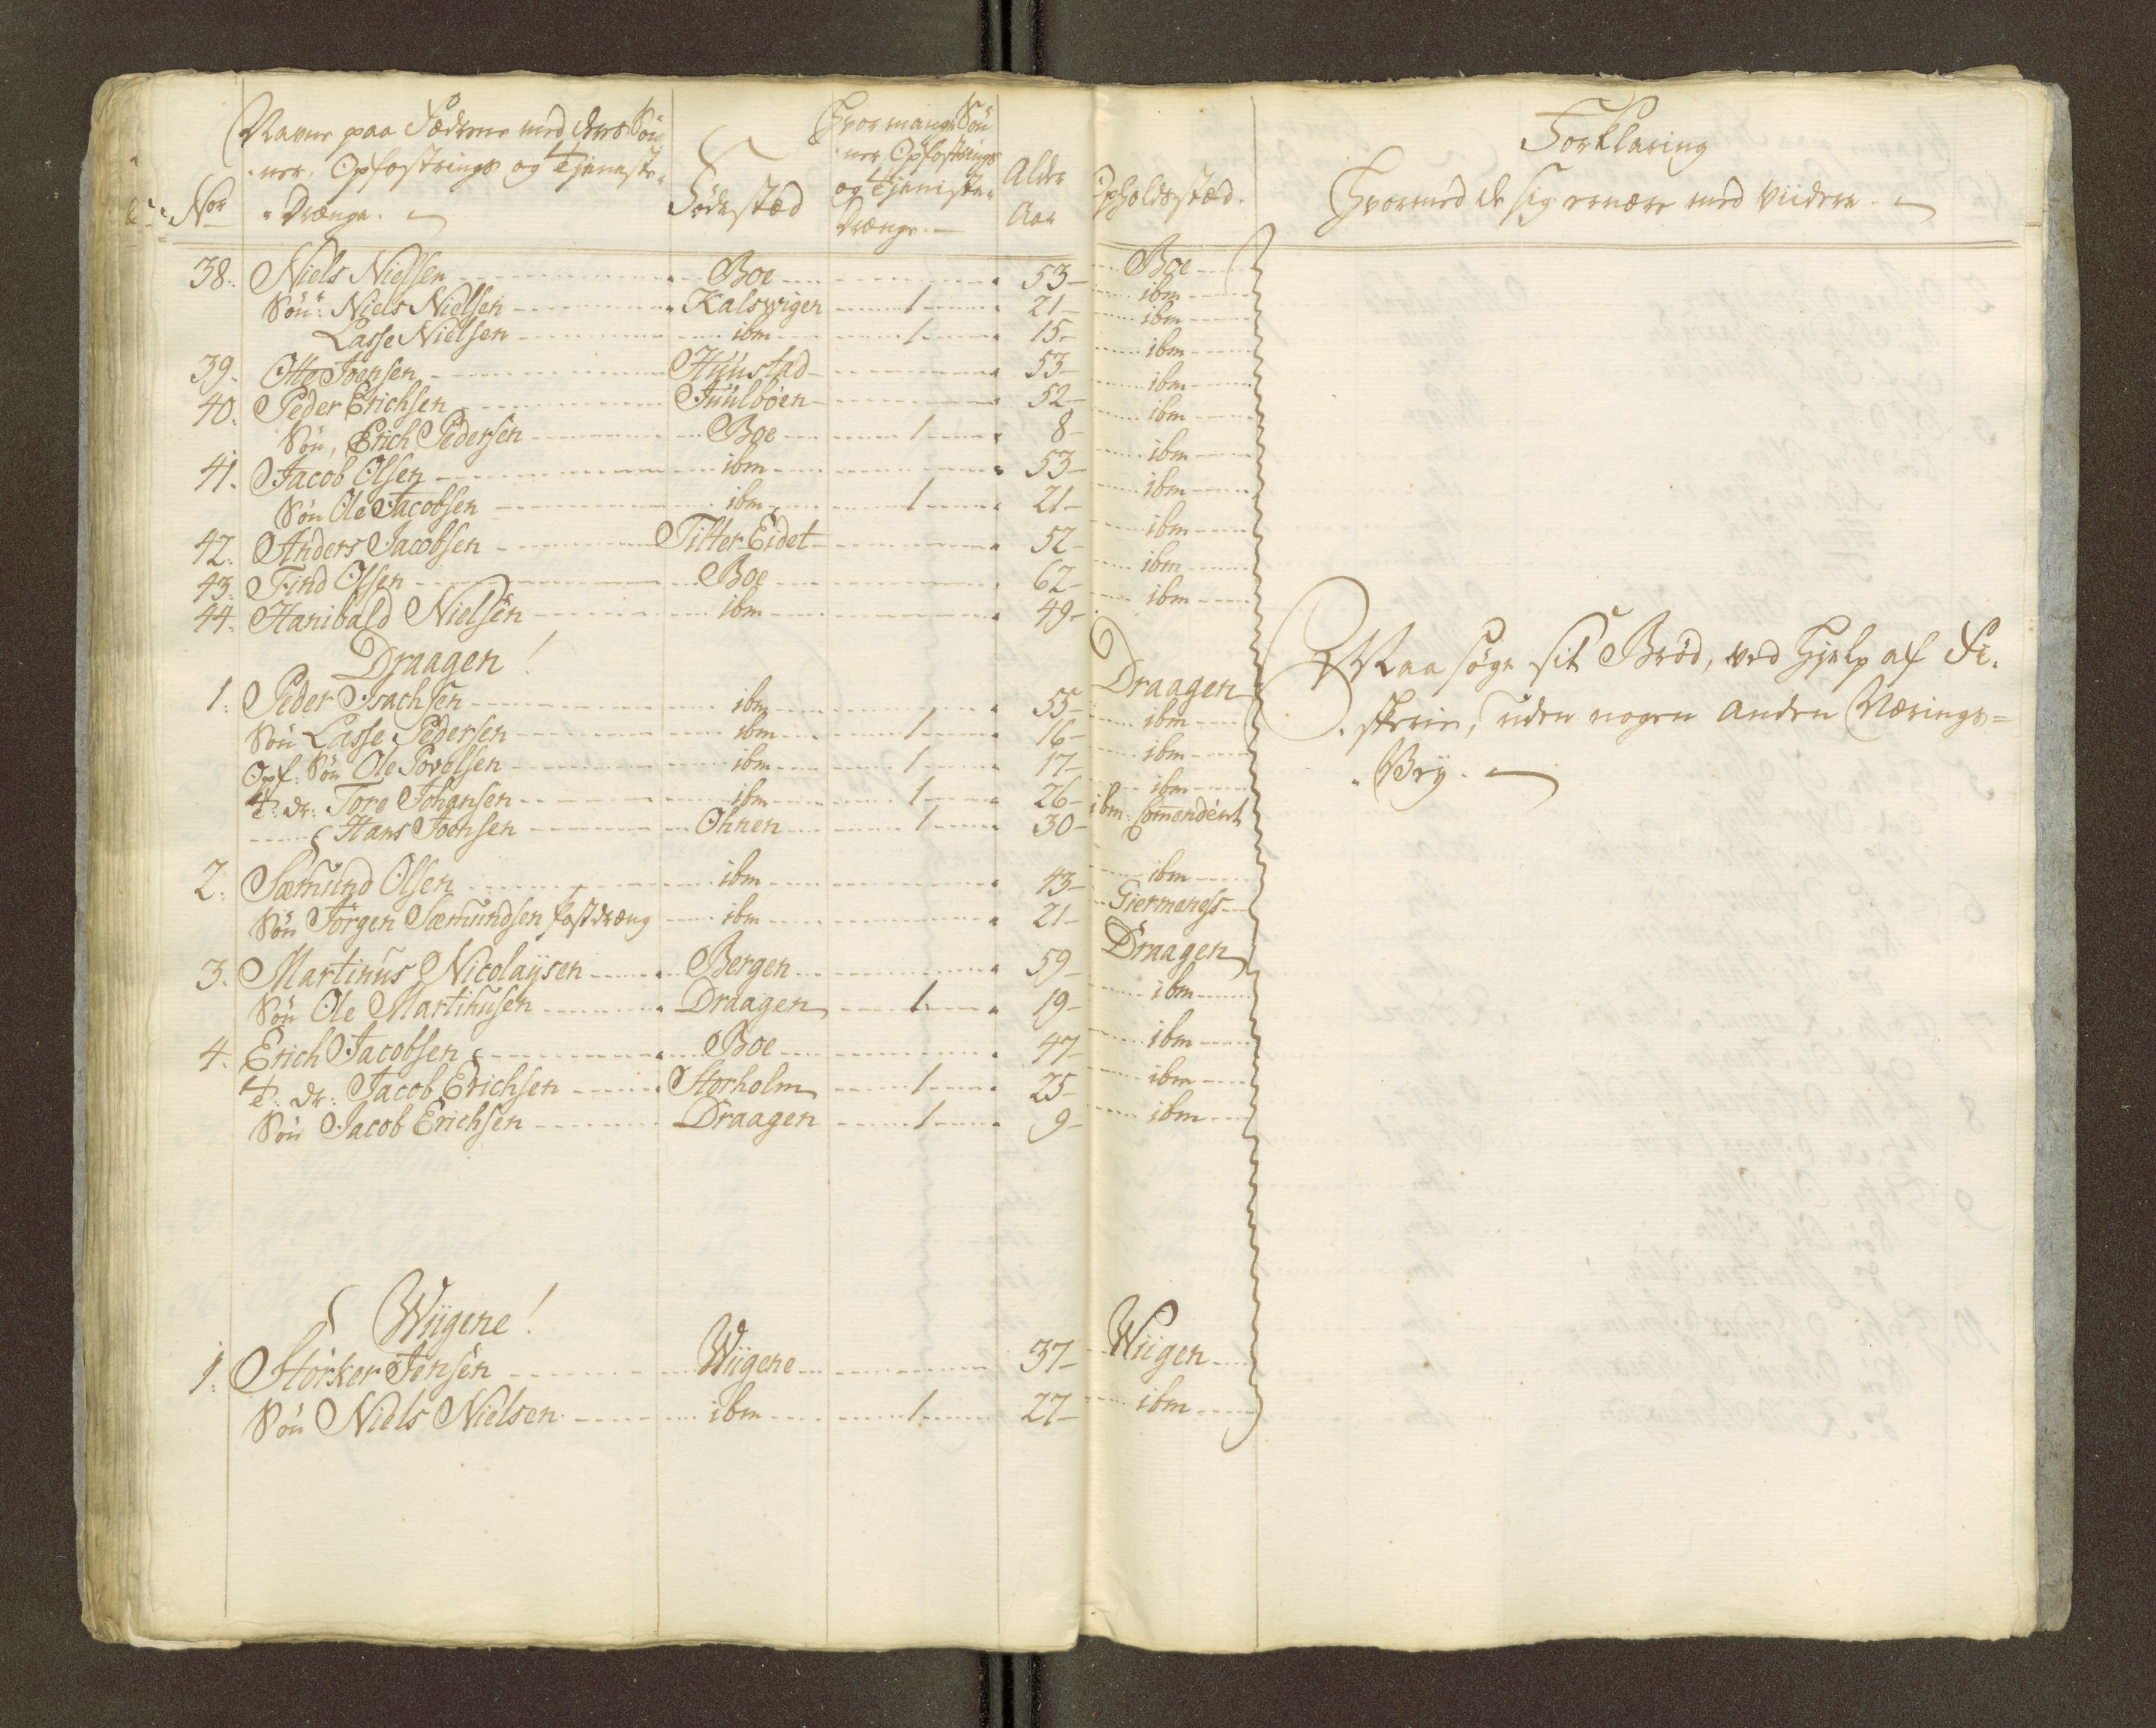 Navne paa Fædrene med deres Søn-
ner, Opfostrings og Tjeneste-
Nor Drænge.
Fødestæd
Hvor mange Søn
ner, Opfostrings
og Tieniste
Drænge.
Alder
Aar
Opholdsstæd.
Forklaring
Hvormed de sig ernære med viidere.
38. Niels Nielsen Boe 53 Boe
Søn: Niels Nielsen Kalsvigen 1 21 ibm
Lasse Nielsen ibm 1 15 ibm
39. Otte Joensen Huustad 53 ibm
40. Peder Erichsen Juulbøen 52 ibm
Søn, Erich Pedersen Boe 1 8 ibm
41. Jacob Olsen ibm 53 ibm
Søn Ole Jacobsen ibm 1 21 ibm
42. Anders Jacobsen Tilter-Eidet 52 ibm
43. Find Olsen Boe 62 ibm
44. Hanibald Nielsen ibm 49 ibm
Draagen!
1. Peder Isachsen ibm 55 Draagen
Søn Lasse Pedersen ibm 1 16 ibm
Opf. Søn Ole Povelsen ibm 1 17 ibm
T. dr. Tore Johansen ibm 1 26 ibm
Hans Joensen Ohnen 1 30 ibm. Comendent
2. Sæmund Olsen ibm 43 ibm
Søn Jørgen Sæmundsen Kastdræng ibm 21 Giermeness
3. Martinus Nicolaysen Bergen 59 Draagen
Søn Ole Martinusen Draagen 1 19 ibm
4. Erich Jacobsen Boe 47 ibm
T. dr. Jacob Erichsen Storholm 1 25 ibm
Søn Jacob Erichsen Draagen 1 9 ibm
Maa søge sit Brød, ved Hjelp af Fi-
skerie, uden nogen anden Nærings-
Vey.
Wiigene!
1. Størker Jensen Wiigene 37 Wiigen
Søn Niels Nielsen ibm 1 27 ibm